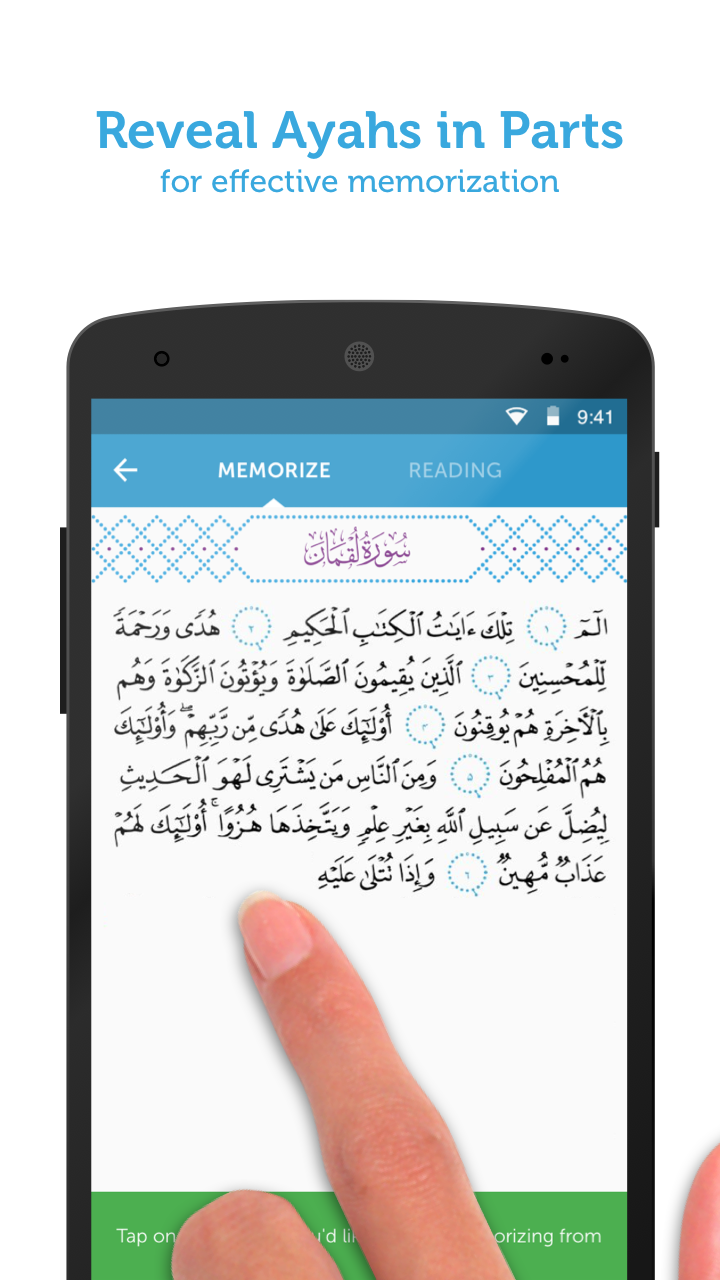 Reveal Ayahs in Parts
for effective memorization
9:41
MEMORIZE READING
سُورَةُ لُقْمَانَ
الٓمٓ ١ تِلْكَ ءَايَٰتُ ٱلْكِتَٰبِ ٱلْحَكِيمِ ٢ هُدًى وَرَحْمَةً
لِّلْمُحْسِنِينَ ٣ ٱلَّذِينَ يُقِيمُونَ ٱلصَّلَوٰةَ وَيُؤْتُونَ ٱلزَّكَوٰةَ وَهُم
بِٱلْأَخِرَةِ هُمْ يُوقِنُونَ ٤ أُو۟لَٰٓئِكَ عَلَىٰ هُدًى مِّن رَّبِّهِمْ ۖ وَأُو۟لَٰٓئِكَ
هُمُ ٱلْمُفْلِحُونَ ٥ وَمِنَ ٱلنَّاسِ مَن يَشْتَرِى لَهْوَ ٱلْحَدِيثِ
لِيُضِلَّ عَن سَبِيلِ ٱللَّهِ بِغَيْرِ عِلْمٍ وَيَتَّخِذَهَا هُزُوًا ۚ أُو۟لَٰٓئِكَ لَهُمْ
عَذَابٌ مُّهِينٌ ٦ وَإِذَا تُتْلَىٰ عَلَيْهِ
Tap on from